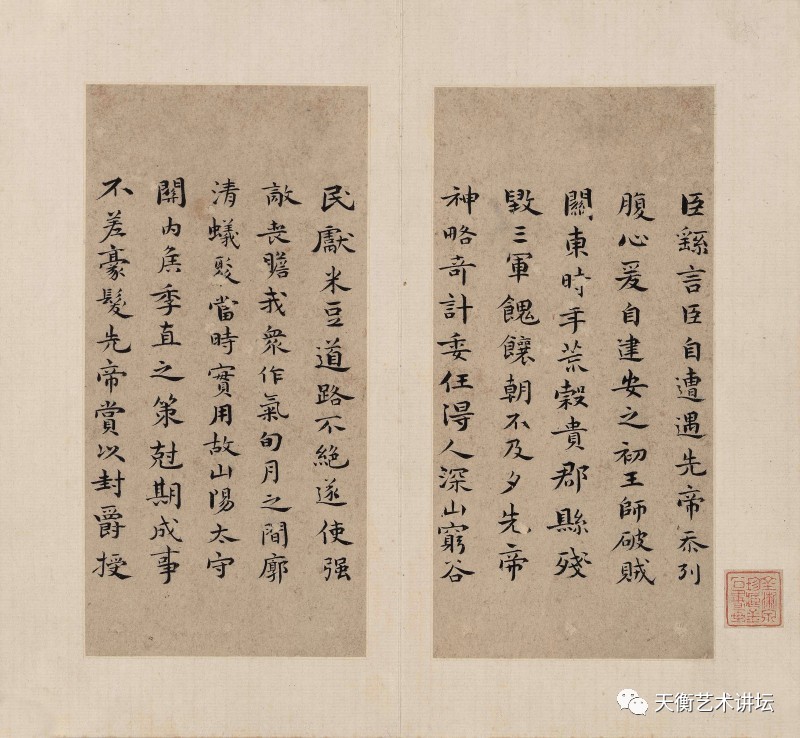 臣繇言臣自遭遇先帝忝列
腹心爰自建安之初王師破賊
關東時年荒穀貴郡縣殘
毀三軍餽饟朝不及夕先帝
神略奇計委任得人深山窮谷
民獻米豆道路不絶遂使强
敵丧膽我衆作氣旬月之間廓
清蟻聚當時實用故山陽太守
關内矦季直之策尅期成事
不差豪髮先帝賞以封爵授
天衡艺术讲坛